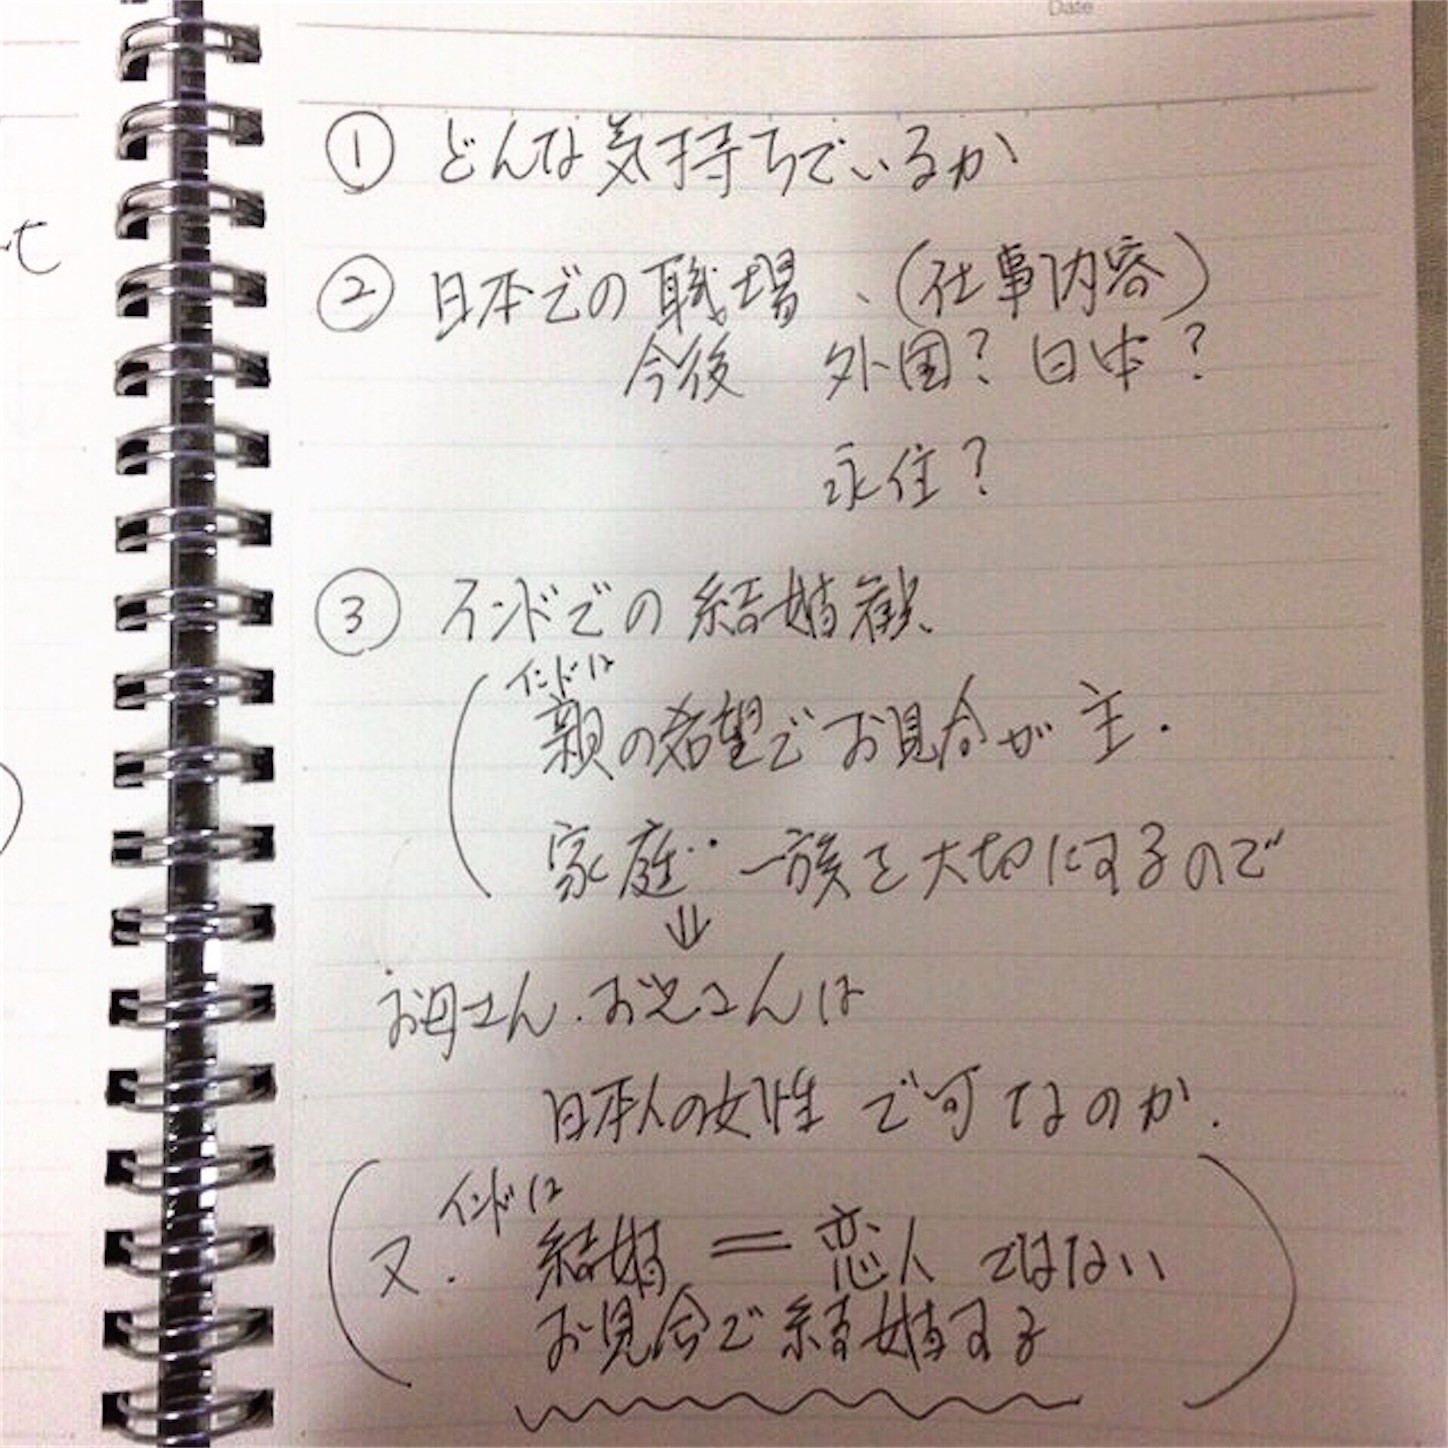 Date
① どんな気持ちでいるか
② 日本での職場、(仕事内容)
今後 外国?日本?
永住?
③ インドでの結婚観、
インドは
(親の希望でお見合が主.
家庭‥一族を大切にするので
⇓
お母さん.お兄さんは
日本人の女性で可なのか.
インドは
(又. 結婚=恋人ではない
お見合で結婚する)
も
)